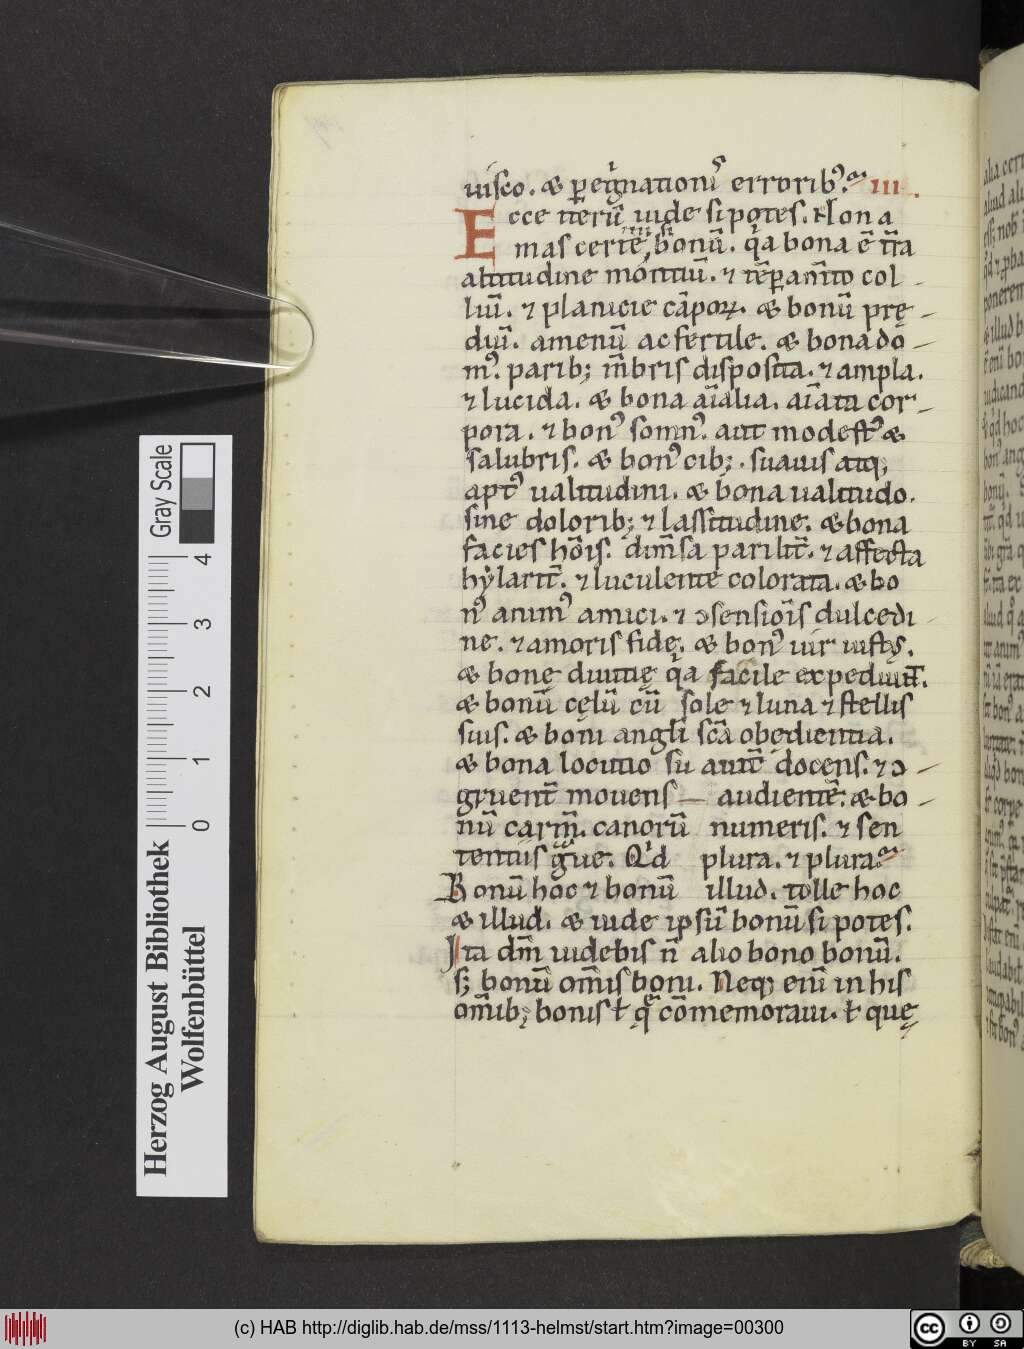 uisco. & peg̃nationũ erroribꝰ. III.
Ecce iterũ uide si potes. Non a
mas certe nisi bonũ. q̃a bona ẽ tr̃a
altitudine montiũ. ⁊ tẽꝑam̃to col-
liũ. ⁊ planicie cãpoꝝ. & bonũ prę-
diũ. amenũ ac fertile. & bona do-
mꝰ. parib; m̃bris disposita. ⁊ ampla.
⁊ lucida. & bona aĩalia. aĩata cor-
pora. ⁊ bonꝰ somnꝰ. aut modestꝰ &
salubris. & bonꝰ cib;. suauis atq;
aptꝰ ualitudini. & bona ualitudo.
sine dolorib; ⁊ lassitudine. & bona
facies hõis. dim̃sa parilit̃. ⁊ affecta
hẏlarit̃. ⁊ luculente colorata. & bo
nꝰ animꝰ amici. ⁊ ↄsensiõis dulcedi
ne. ⁊ amoris fide. & bonꝰ uir iustꝰ.
& bonę diuitię q̃a facile expediunt̃.
& bonũ cęlũ cũ sole ⁊ luna ⁊ stellis
suis. & boni angli sc̃a obedientia.
& bona locutio suauit̃ docens. ⁊ ↄ-
gruent̃ mouens audientẽ. & bo-
nũ carm̃. canorũ numeris. ⁊ sen
tentiis g̃ue. Q'd plura. ⁊ plura.
Bonũ hoc ⁊ bonũ illud. tolle hoc
& illud. & uide ipsũ bonũ si potes.
Ita dm̃ uidebis ñ alio bono bonũ.
s; bonũ om̃is boni. Neq; eni̅ in his
om̃ib; bonis ł q̃ cõmemoraui. ł quę
Herzog August Bibliothek
Wolfenbüttel
0 1 2 3 4
Gray Scale
(c) HAB http://diglib.hab.de/mss/1113-helmst/start.htm?image=00300
cc BY SA